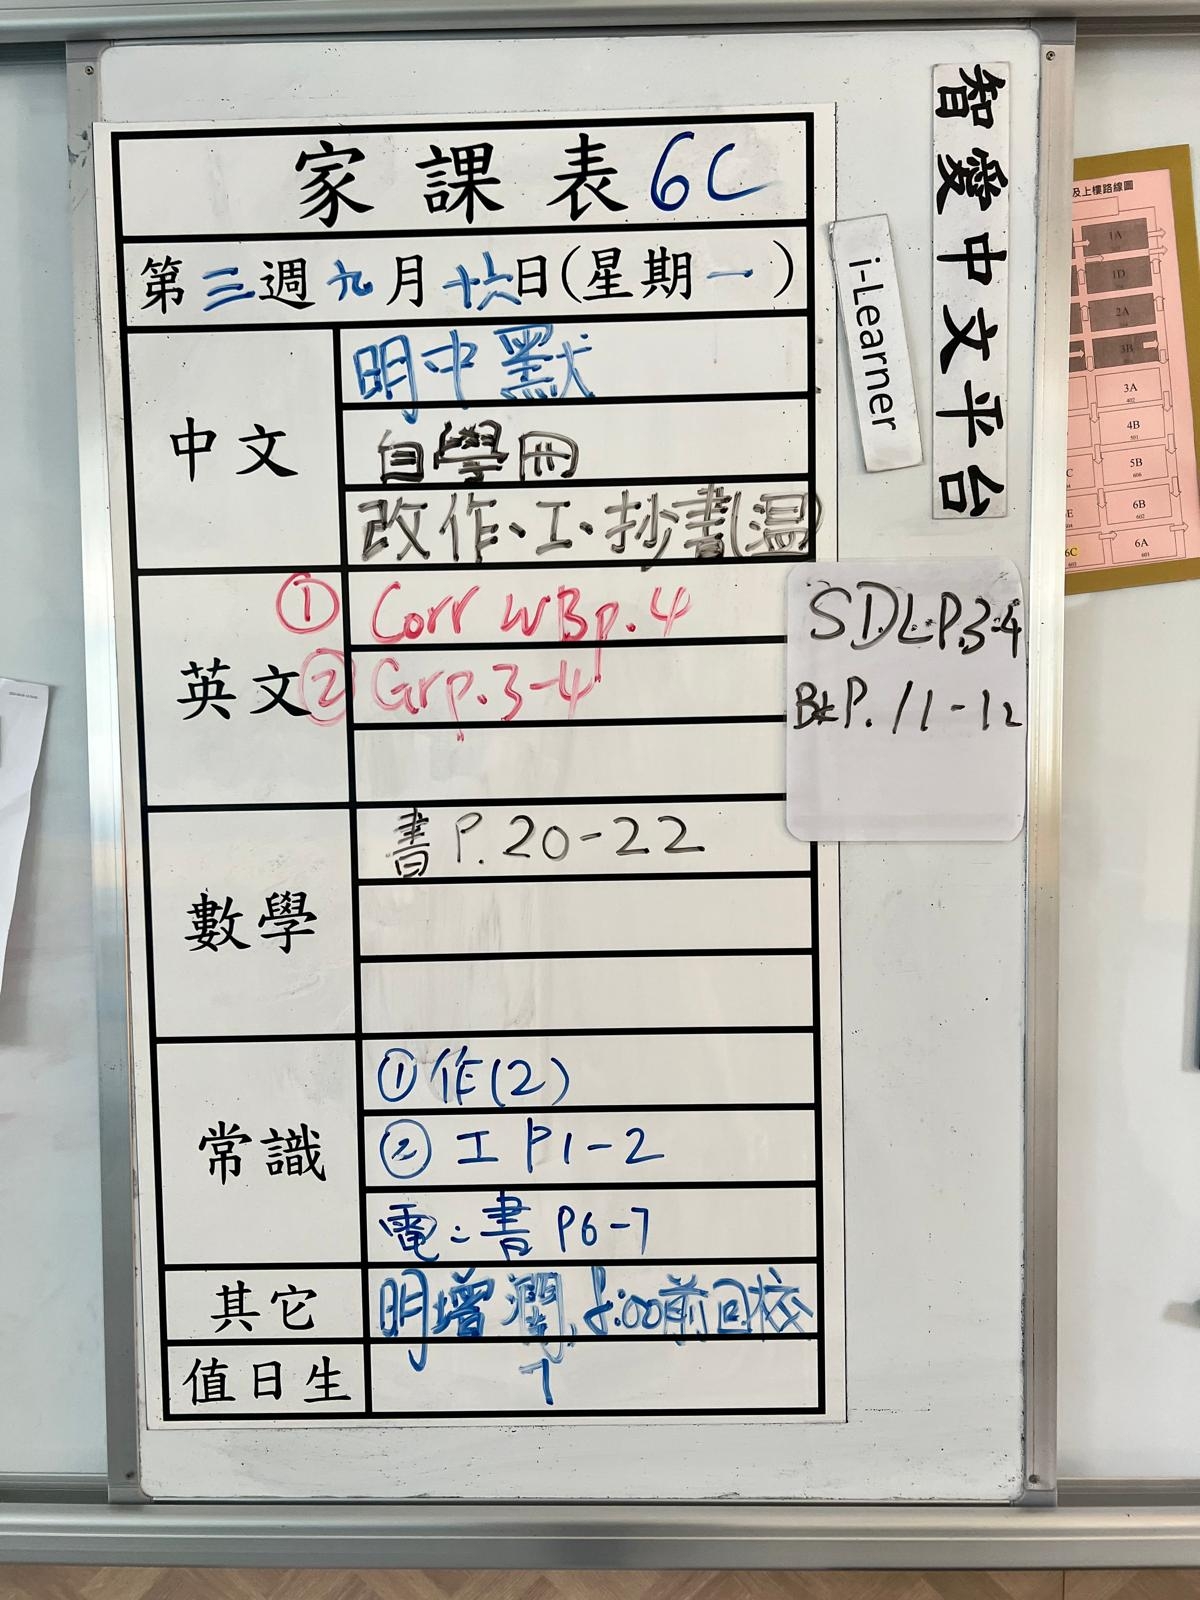 家課表 6C
第三週九月十六日(星期一)
中文
明中默
自學冊
改作、工、抄書(溫)
英文
① Corr WB p.4
② Gr p.3-4
數學
書 P.20-22
常識
①作(2)
②工 P1-2
電:書 P6-7
其它
明增潤,8:00前回校
值日生
7
智愛中文平台
i-Learner
SDL P.3-4
Bk P.11-12
及上樓路線圖
1A
1D
2A
3B
3A
402
4B
501
5B
606
6B
602
6A
601
6C
603